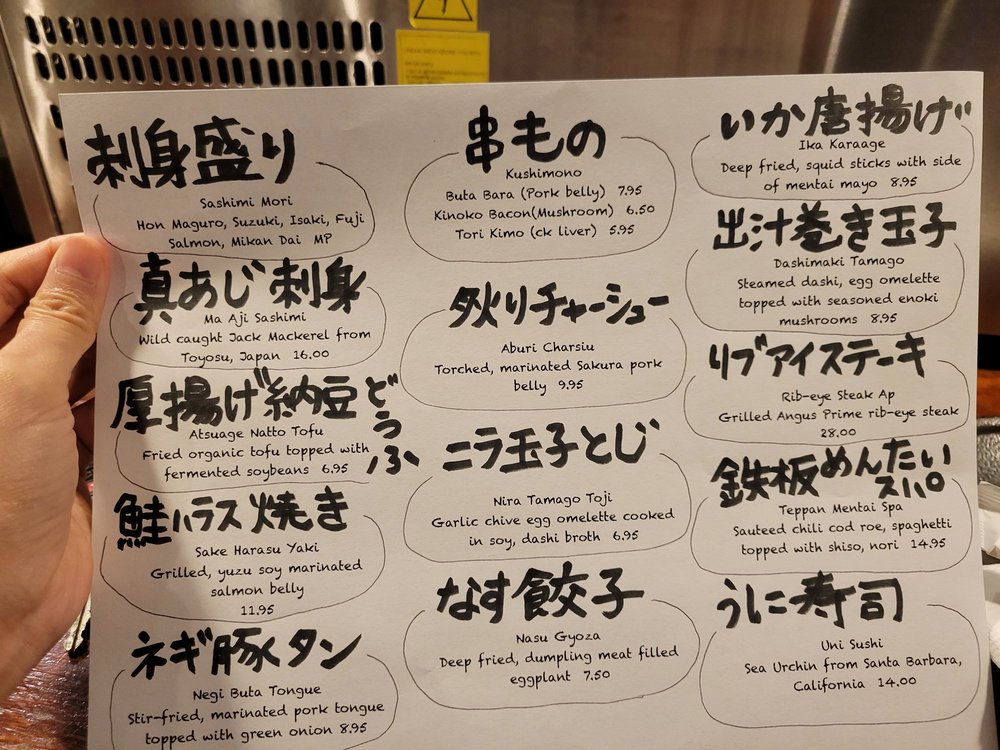 刺身盛り
Sashimi Mori
Hon Maguro, Suzuki, Isaki, Fuji
Salmon, Mikan Dai MP
真あじ刺身
Ma Aji Sashimi
Wild caught Jack Mackerel from
Toyosu, Japan 16.00
厚揚げ納豆どうふ
Atsuage Natto Tofu
Fried organic tofu topped with
fermented soybeans 6.95
鮭ハラス焼き
Sake Harasu Yaki
Grilled, yuzu soy marinated
salmon belly
11.95
ネギ豚タン
Negi Buta Tongue
Stir-fried, marinated pork tongue
topped with green onion 8.95
串もの
Kushimono
Buta Bara (Pork belly) 7.95
Kinoko Bacon(Mushroom) 6.50
Tori Kimo (ck liver) 5.95
炙りチャーシュー
Aburi Charsiu
Torched, marinated Sakura pork
belly 9.95
ニラ玉子とじ
Nira Tamago Toji
Garlic chive egg omelette cooked
in soy, dashi broth 6.95
なす餃子
Nasu Gyoza
Deep fried, dumpling meat filled
eggplant 7.50
いか唐揚げ
Ika Karaage
Deep fried, squid sticks with side
of mentai mayo 8.95
出汁巻き玉子
Dashimaki Tamago
Steamed dashi, egg omelette
topped with seasoned enoki
mushrooms 8.95
リブアイステーキ
Rib-eye Steak Ap
Grilled Angus Prime rib-eye steak
28.00
鉄板めんたい
スパ
Teppan Mentai Spa
Sauteed chili cod roe, spaghetti
topped with shiso, nori 14.95
うに寿司
Uni Sushi
Sea Urchin from Santa Barbara,
California 14.00